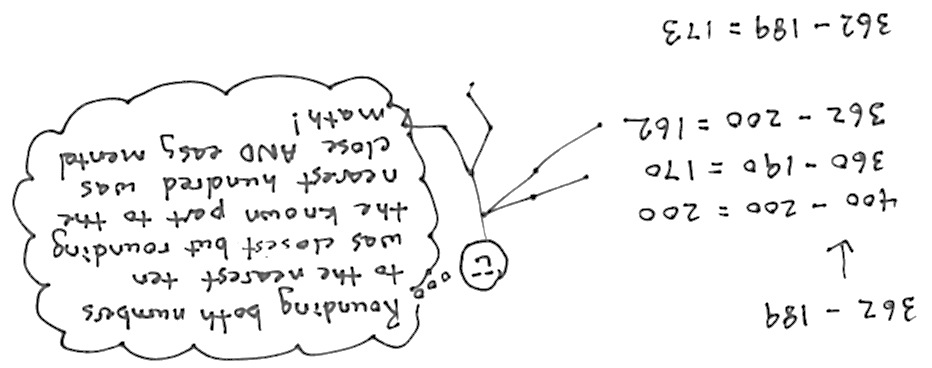 362 - 189
↓
400 - 200 = 200
360 - 190 = 170
362 - 200 = 162
362 - 189 = 173
Rounding both numbers
to the nearest ten
was closest but rounding
the known part to the
nearest hundred was
close AND easy mental
math!